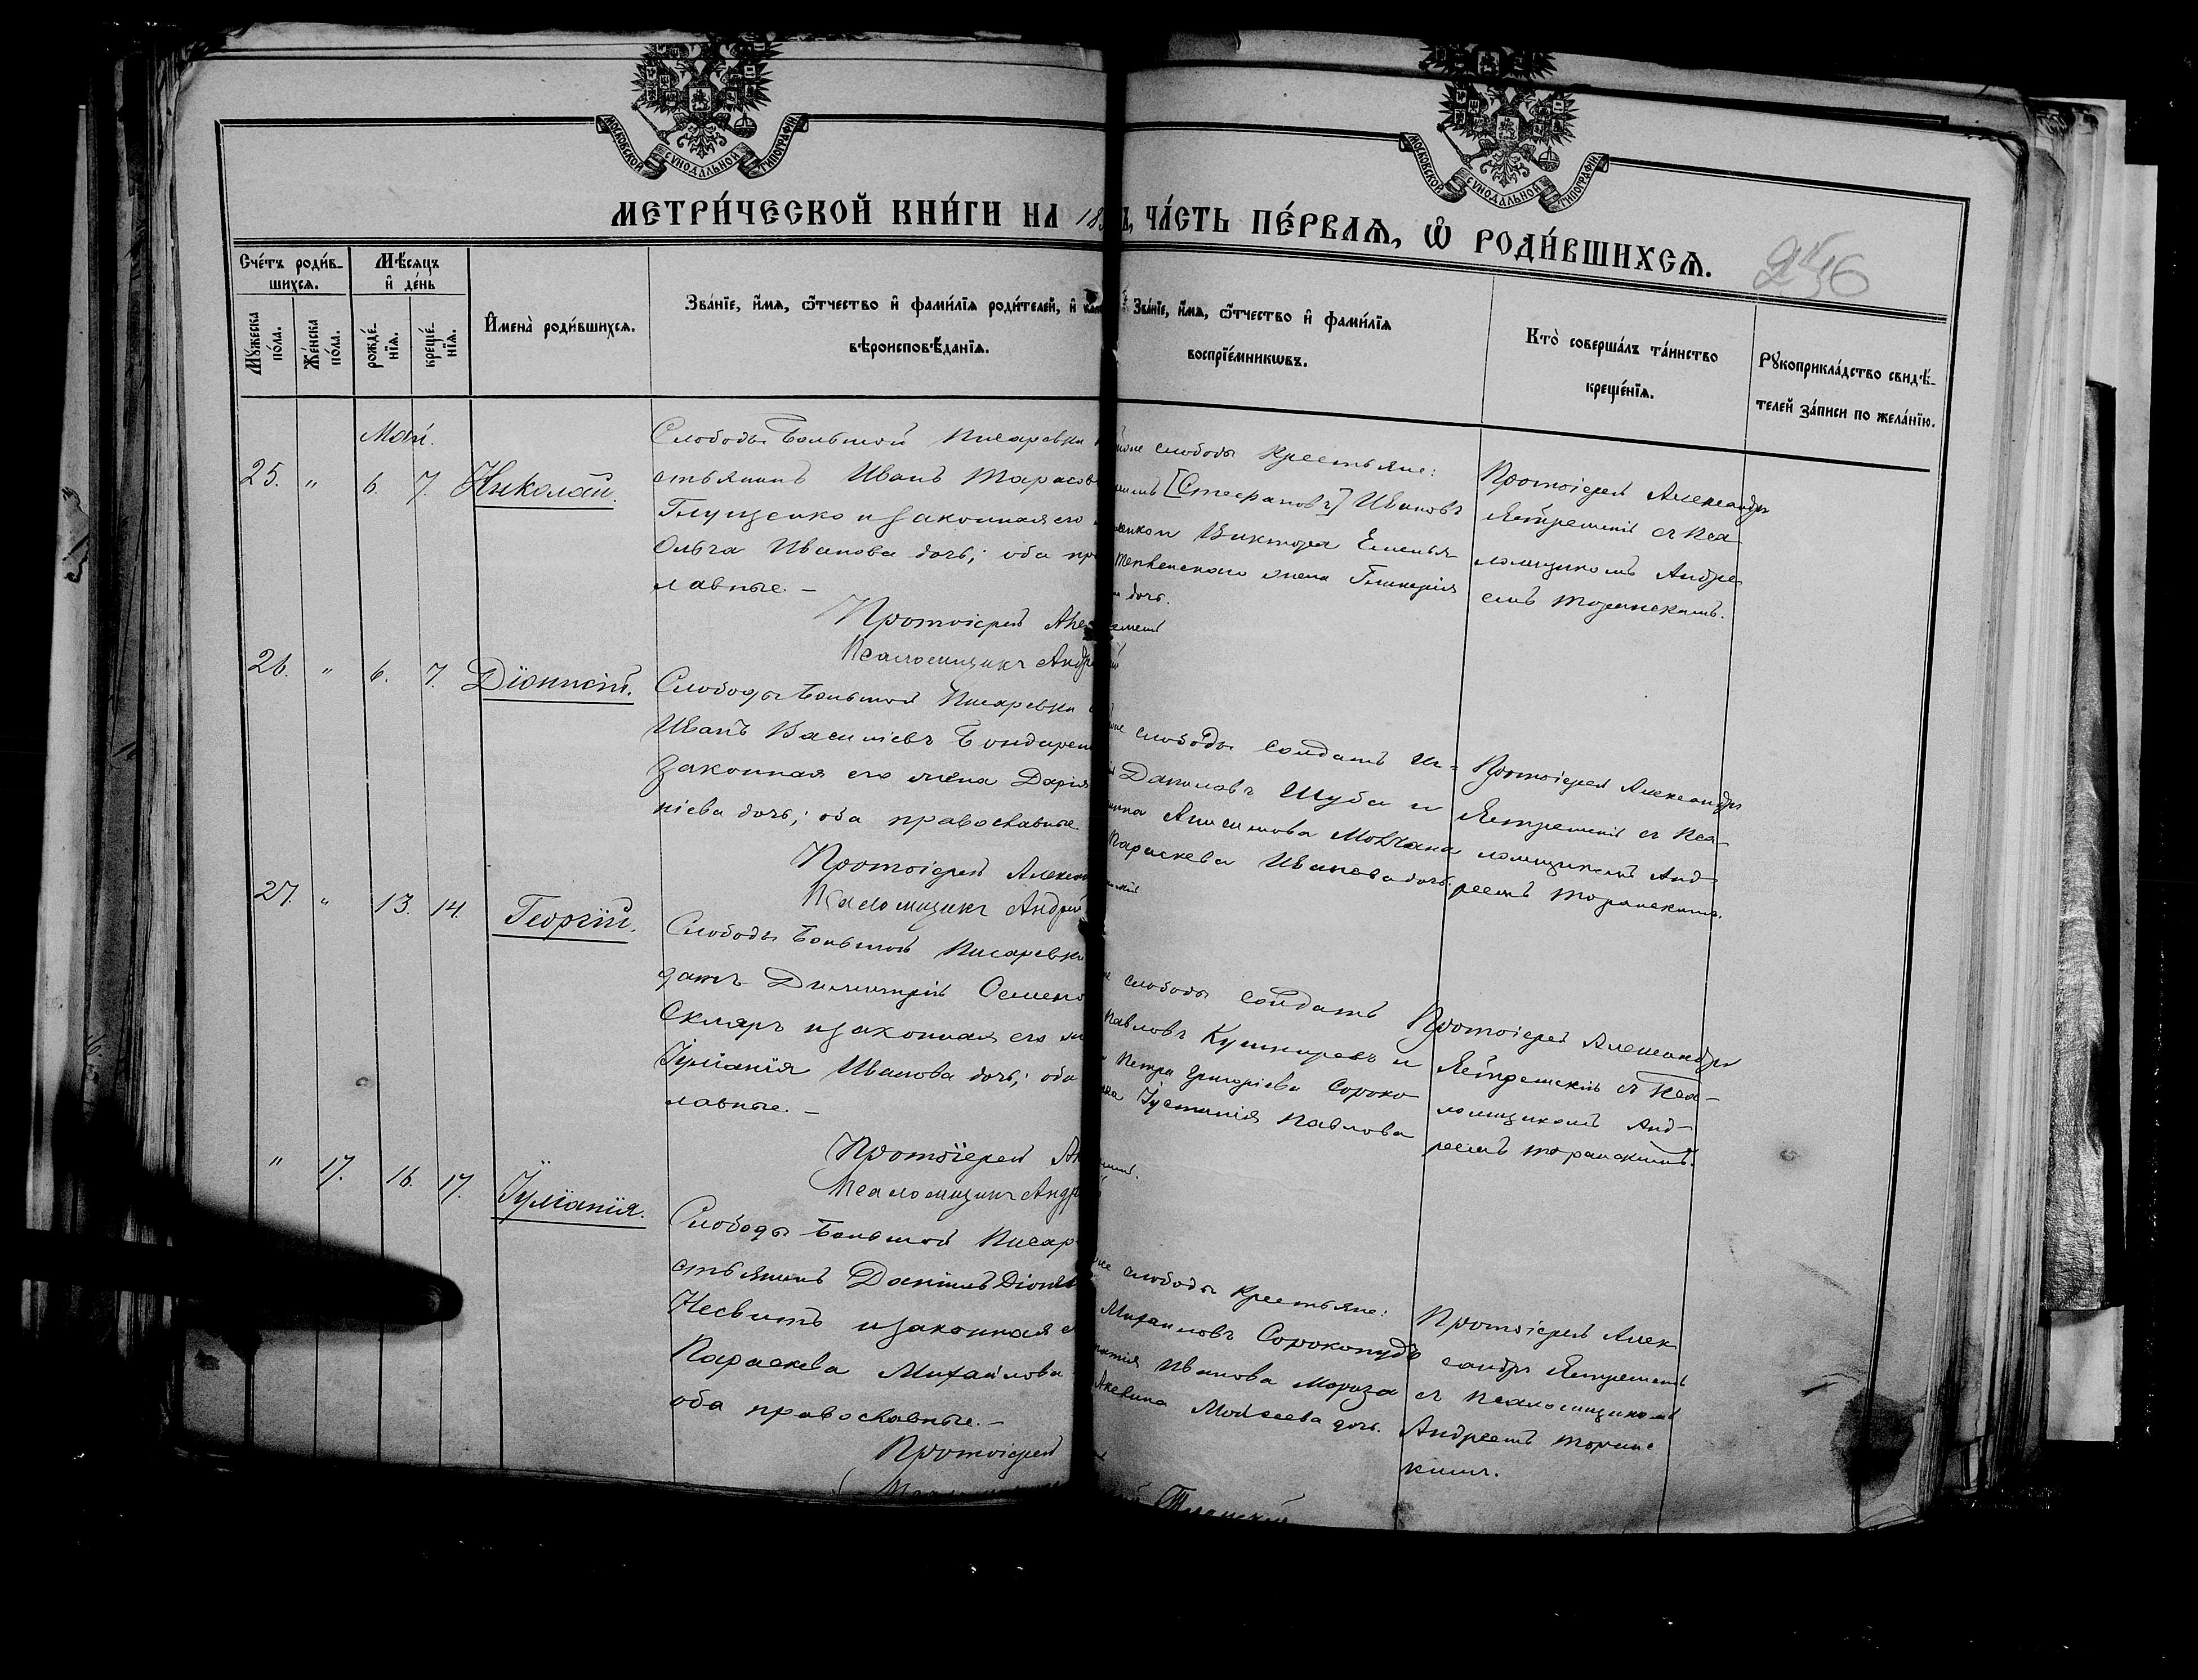 МОСКОВСКОЙ СѴНОДАЛЬНОЙ ТИПОГРАФІИ
МОСКОВСКОЙ СѴНОДАЛЬНОЙ ТИПОГРАФІИ
МЕТРИ́ЧЕСКОЙ КНИ́ГИ НА 18
ЧА́СТЬ ПЕ́РВАѦ, Ѽ РОДИ́ВШИХСѦ.
Сче́тъ роди́в-
шихсѧ.
Мꙋ́жеска по́ла.
Же́нска по́ла.
Мѣ́сѧцъ
и҆ де́нь
рожде́нїѧ.
креще́нїѧ.
И҆мена̀ роди́вшихсѧ.
Зва́нїе, и҆́мѧ, ѻ҆́тчество и҆ фами́лїѧ роди́телей, и҆
вѣроисповѣ́данїѧ.
Зва́нїе, и҆́мѧ, ѻ҆́тчество и҆ фами́лїѧ
воспрїе́мникѡвъ.
Кто̀ соверша́лъ та́инство
креще́нїѧ.
Рꙋкоприкла́дство свидѣ́-
телей за́писи по жела́нїю.
Май.
25. " 6. 7. Николай.
Слободы Большой Писаревки
стьянинъ Иванъ Тарасов
Глущенко и законная его
Ольга Иванова дочь; оба пр
лавные. –
Протоіерей
Псаломщикъ Андр
слободы Крестьяне:
[Стефановъ] Ивановъ
Виктора Емелья
жена Гликерія
дочь.
Протоіерей Александръ
Ястремскій съ Пса-
ломщикомъ Андре
емъ Торанскимъ.
26. " 6. 7. Діонисій.
Слободы Большой Писаревки
Иванъ Васильевъ Бондарен
законная его жена Дарія
нієва дочь; оба православные
Протоіерей Алексан
Псаломщикъ Андрей
слободы солдатъ
Даниловъ Шуба и
Анисимова Мовчана
Параскева Иванова дочь.
Протоіерей Александръ
Ястремскій съ Пса-
ломщикомъ Анд-
реемъ Торанскимъ.
27. " 13. 14. Георгій.
Слободы Большой Писаревки
датъ Димитрій Семено
Скляръ и законная его
Іуліанія Иванова дочь; оба
лавные. –
Протоіерей
Псаломщикъ Андр
слободы солдатъ
Павловъ Кушнаревъ и
Петра Григоріева Сороко
Іустинія Павлова
Протоіерей Александръ
Ястремскій съ Пса-
ломщикомъ Анд-
реемъ Торанскимъ.
" 17. 16. 17. Іуліанія.
Слободы Большой Писар
стьянинъ Даніилъ Діони
Несвитъ и законная
Параскева Михайлова
оба православные. –
Протоіерей
слободы Крестьяне:
Михаиловъ Сорокопудъ
Иванова Мороза
Акелина Моисеева дочь.
Протоіерей Алек
сандръ Ястремскій
съ Псаломщикомъ
Андреемъ Торанс
кимъ.